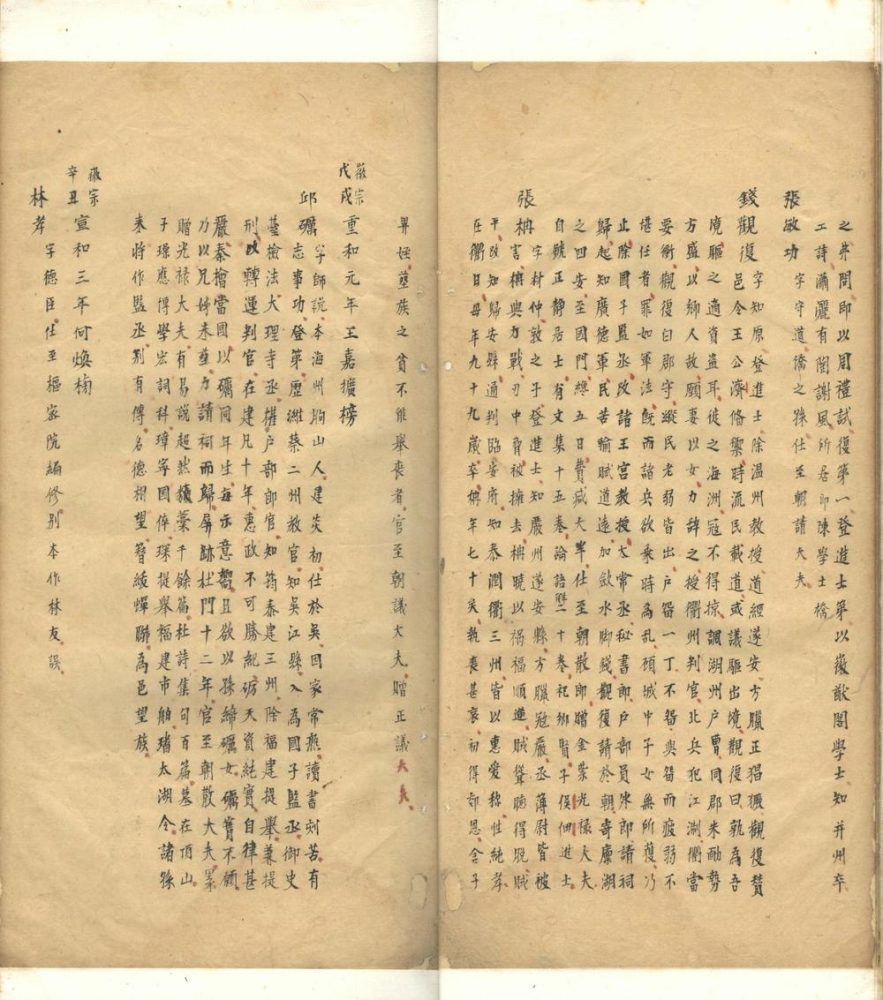 之奔問即以周禮試復第一登進士第以徽猷閣學士知并州卒
張敏功 字守道僑之孫仕至朝請大夫
工詩瀟灑有閣謝風所居即陳學士橋
錢觀復 字知原登進士除温州教授道經遂安方臘正猖獗觀復贊
邑令王公濟脩禦時流民載道或議驅出境觀復曰孰為吾
境驅之適資盜耳徒之海洲冦不得掠調湖州户曹同郡朱勔勢
方盛以鄉人故願妻以女力辭之授衢州判官北兵犯江淛衢當
要衝觀復白郡守蹤民老弱皆出户畱一丁不畱與畱而疲弱不
堪任者罪如軍法既而諸兵欲乘時為乱頋城中子女無所蔓乃
止除國子監丞改諸王宫教授太常丞秘書郎户部員外郎請祠
歸起知廣德軍民苦輸賦道遠加歛水脚錢觀復請於朝寄廪湖
之四安至國門總五日費减大半仕至朝散郎贈金紫光禄大夫
自號正靜居士有文集十五卷論語觧二十卷祀鄉賢子俣佃進士
張枏 字材仲敦之子登進士知嚴州遂安縣方臘冦嚴丞薄尉皆被
害枏與力戰刃中胷被擁去枏曉以禍福順逆賊聳聽得脱賊
平改知歸安縣通判臨安府知泰潤衢三州皆以惠愛稱性純孝
在衢日母年九十九歲卒枏年七十矣執喪甚哀初得郊恩舍子
畀姪塟族之貧不能舉喪者官至朝議大夫贈正議大夫
徽宗
戊戌 重和元年王嘉擴榜
邱礪 字師説本海州朐山人建炎初仕於吳因家常熟讀書刻苦有
志事功登第歷濰蔡二州教官知吳江縣入為國子監丞御史
䑓檢法大理寺丞權户部郎官知筠泰建三州除福建提舉兼提
刑改轉運判官在建凡十年惠政不可勝紀礪天資純實自律甚
嚴秦檜當國以礪同年生每示意嚮且欲以孫締礪女礪實不領
乃以兄好未塟力請祠而歸屏跡杜門十二年官至朝散大夫累
贈光禄大夫有易説超然穖藁千餘篇杜詩集句百篇墓在頂山
子璟應博學宏詞科璋寧國倅琛提舉福建市舶璠太湖令諸孫
耒將作監丞别有傳名德相望簪綾燁聯為邑望族
徽宗
辛丑 宣和三年何煥榜
林孝 字德臣仕至樞宻院編修别本作林友誤